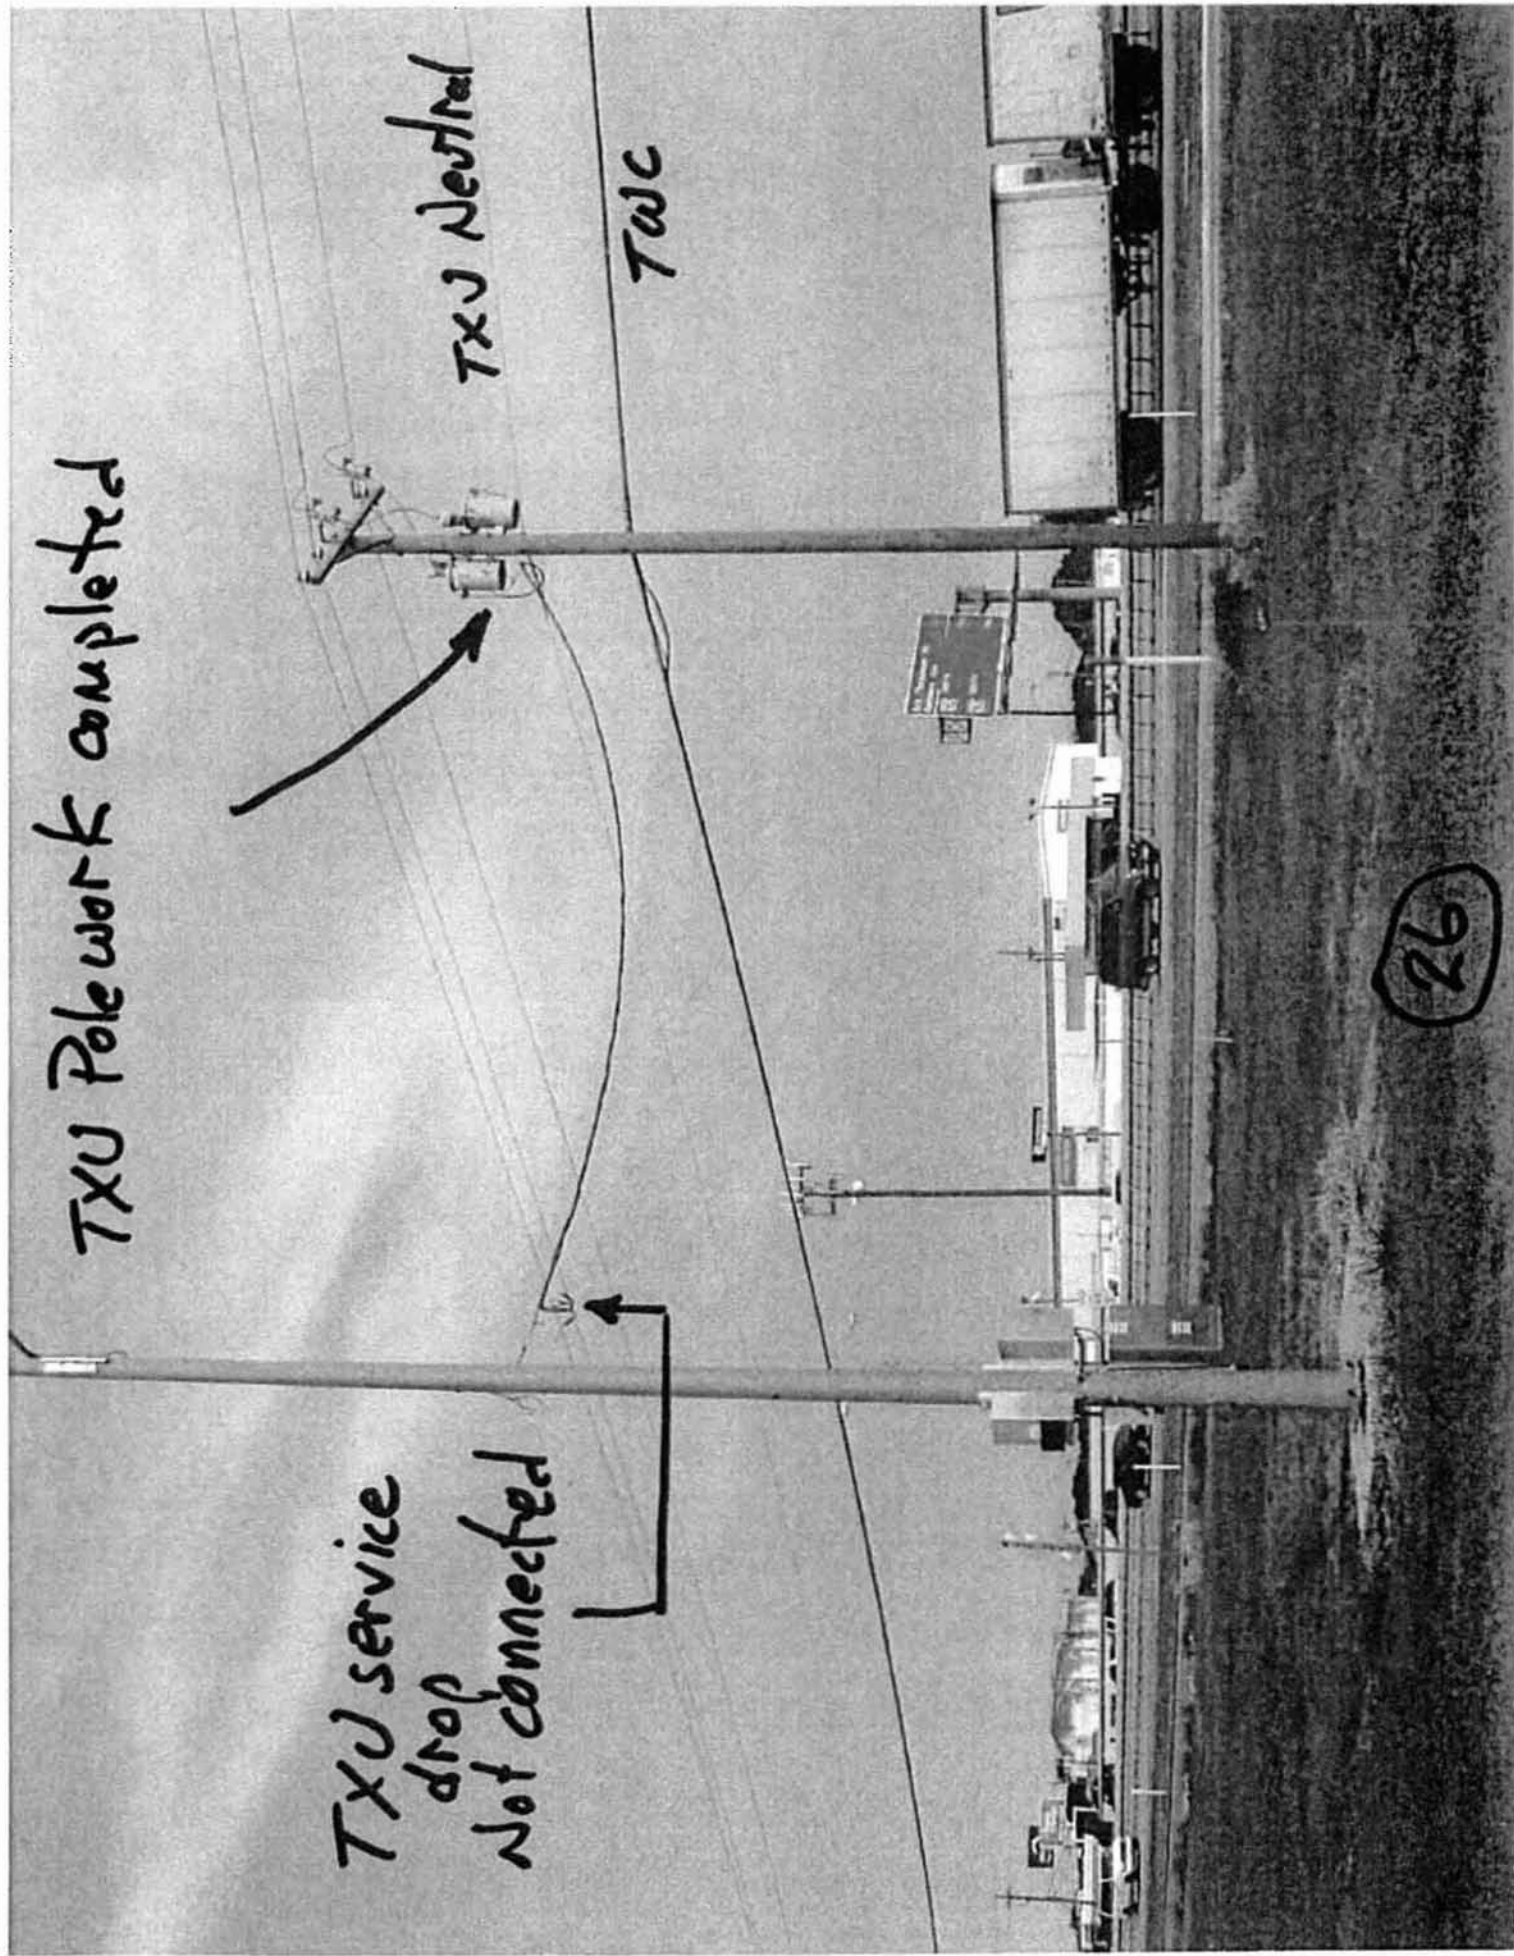 TXU Polework completed
TXU Neutral
TWC
TXU service
drop
Not connected
26